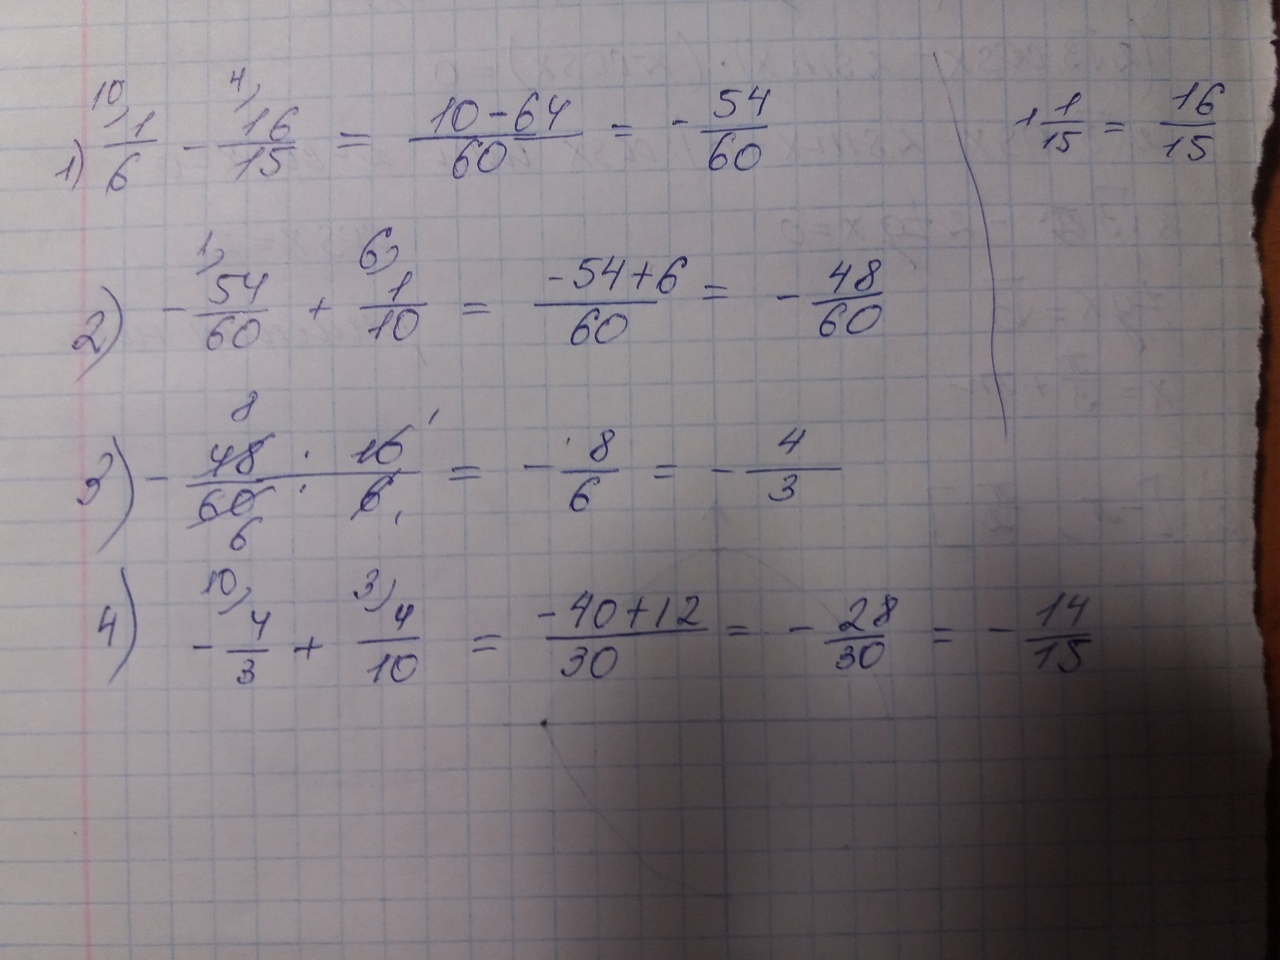 1) 10) 1/6 - 4) 16/15 = (10-64)/60 = - 54/60
1 1/15 = 16/15
2) - 1) 54/60 + 6) 1/10 = (-54+6)/60 = - 48/60
3) - 48/60 : 10/6 = - 8/6 = - 4/3
8 1
6 1
4) - 10) 4/3 + 3) 4/10 = (-40+12)/30 = - 28/30 = - 14/15